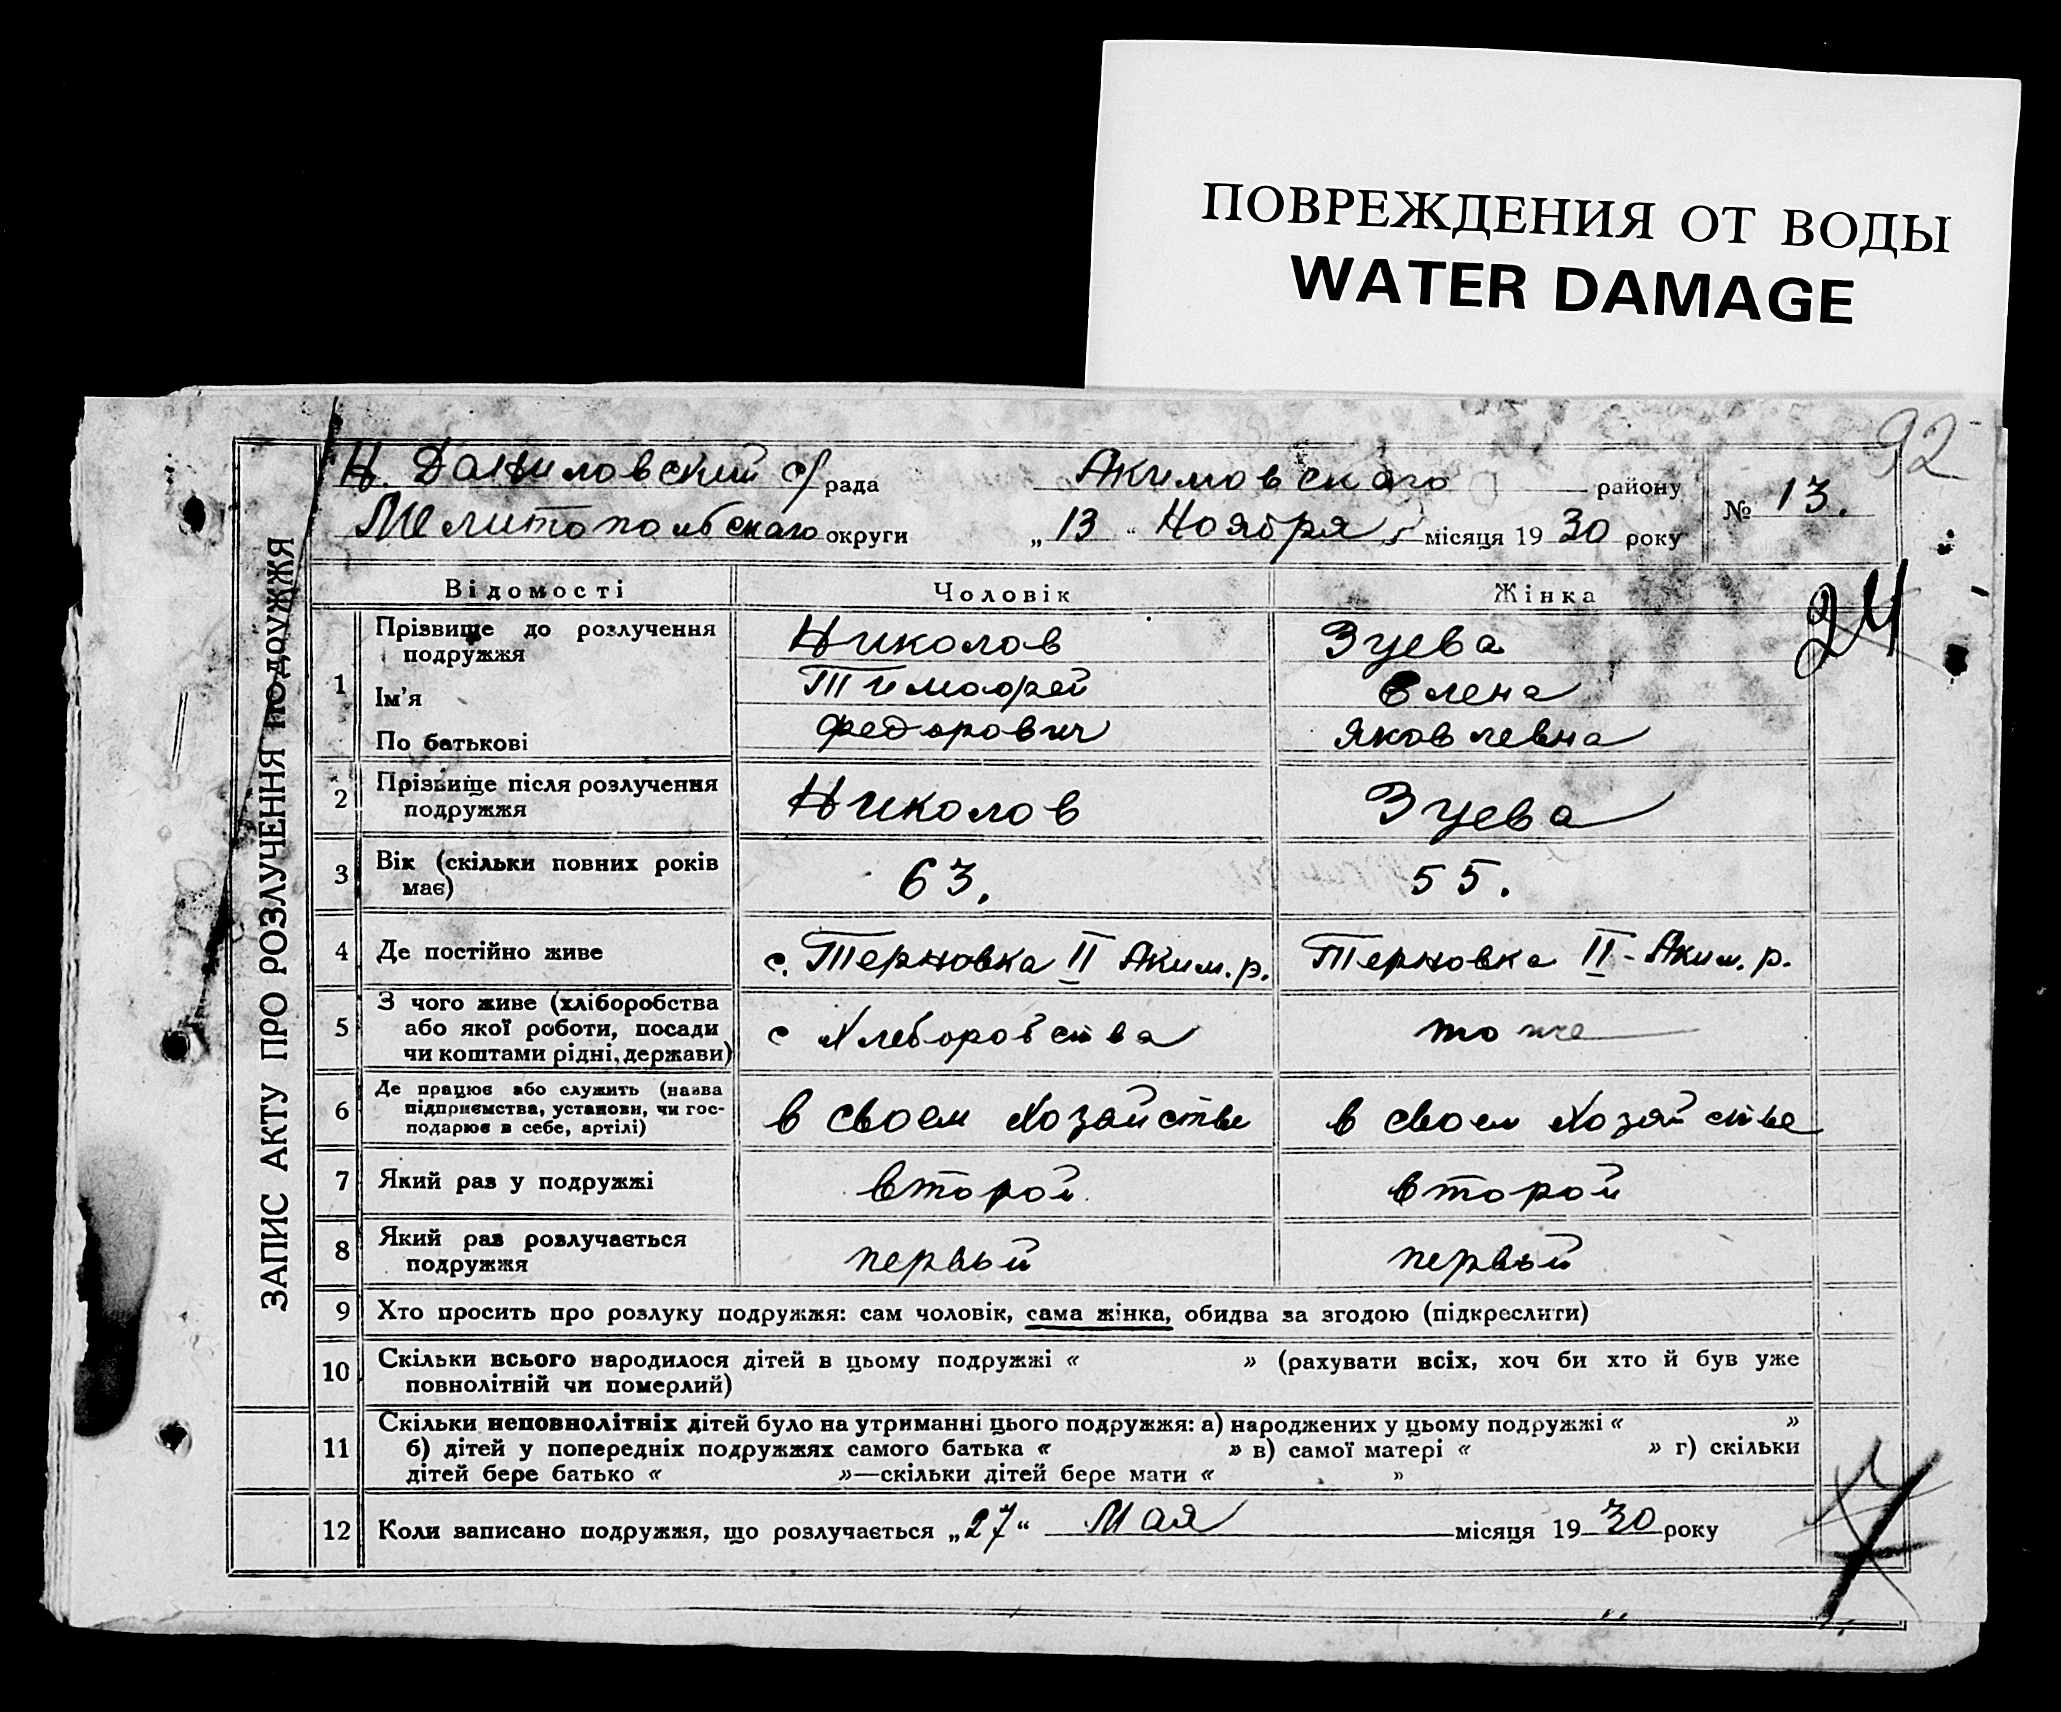 ПОВРЕЖДЕНИЯ ОТ ВОДЫ
WATER DAMAGE
92
Н. Даниловский с/рада Акимовскаго району
№ 13.
Мелитопольскаго округи „13“ Ноября місяця 1930 року
24
ЗАПИС АКТУ ПРО РОЗЛУЧЕННЯ ПОДРУЖЖЯ
Відомості Чоловік Жінка
1 Прізвище до розлучення подружжя Николов Зуева
Ім'я Тимофей Елена
По батькові Федорович Яковлевна
2 Прізвище після розлучення подружжя Николов Зуева
3 Вік (скільки повних років має) 63. 55.
4 Де постійно живе с. Терновка II Аким. р. Терновка II - Аким. р.
5 З чого живе (хліборобства або якої роботи, посади чи коштами рідні, держави) с Хлеборобства тоже
6 Де працює або служить (назва підприємства, установи, чи господарює в себе, артілі) в своем Хозяйстве в своем Хозяйстве
7 Який раз у подружжі второй второй
8 Який раз розлучається подружжя первый первый
9 Хто просить про розлуку подружжя: сам чоловік, сама жінка, обидва за згодою (підкреслити)
10 Скільки всього народилося дітей в цьому подружжі « » (рахувати всіх, хоч би хто й був уже
повнолітній чи померлий)
11 Скільки неповнолітніх дітей було на утриманні цього подружжя: а) народжених у цьому подружжі « »
б) дітей у попередніх подружжях самого батька « » в) самої матері « » г) скільки
дітей бере батько « »—скільки дітей бере мати « »
12 Коли записано подружжя, що розлучається „27“ Мая місяця 1930 року